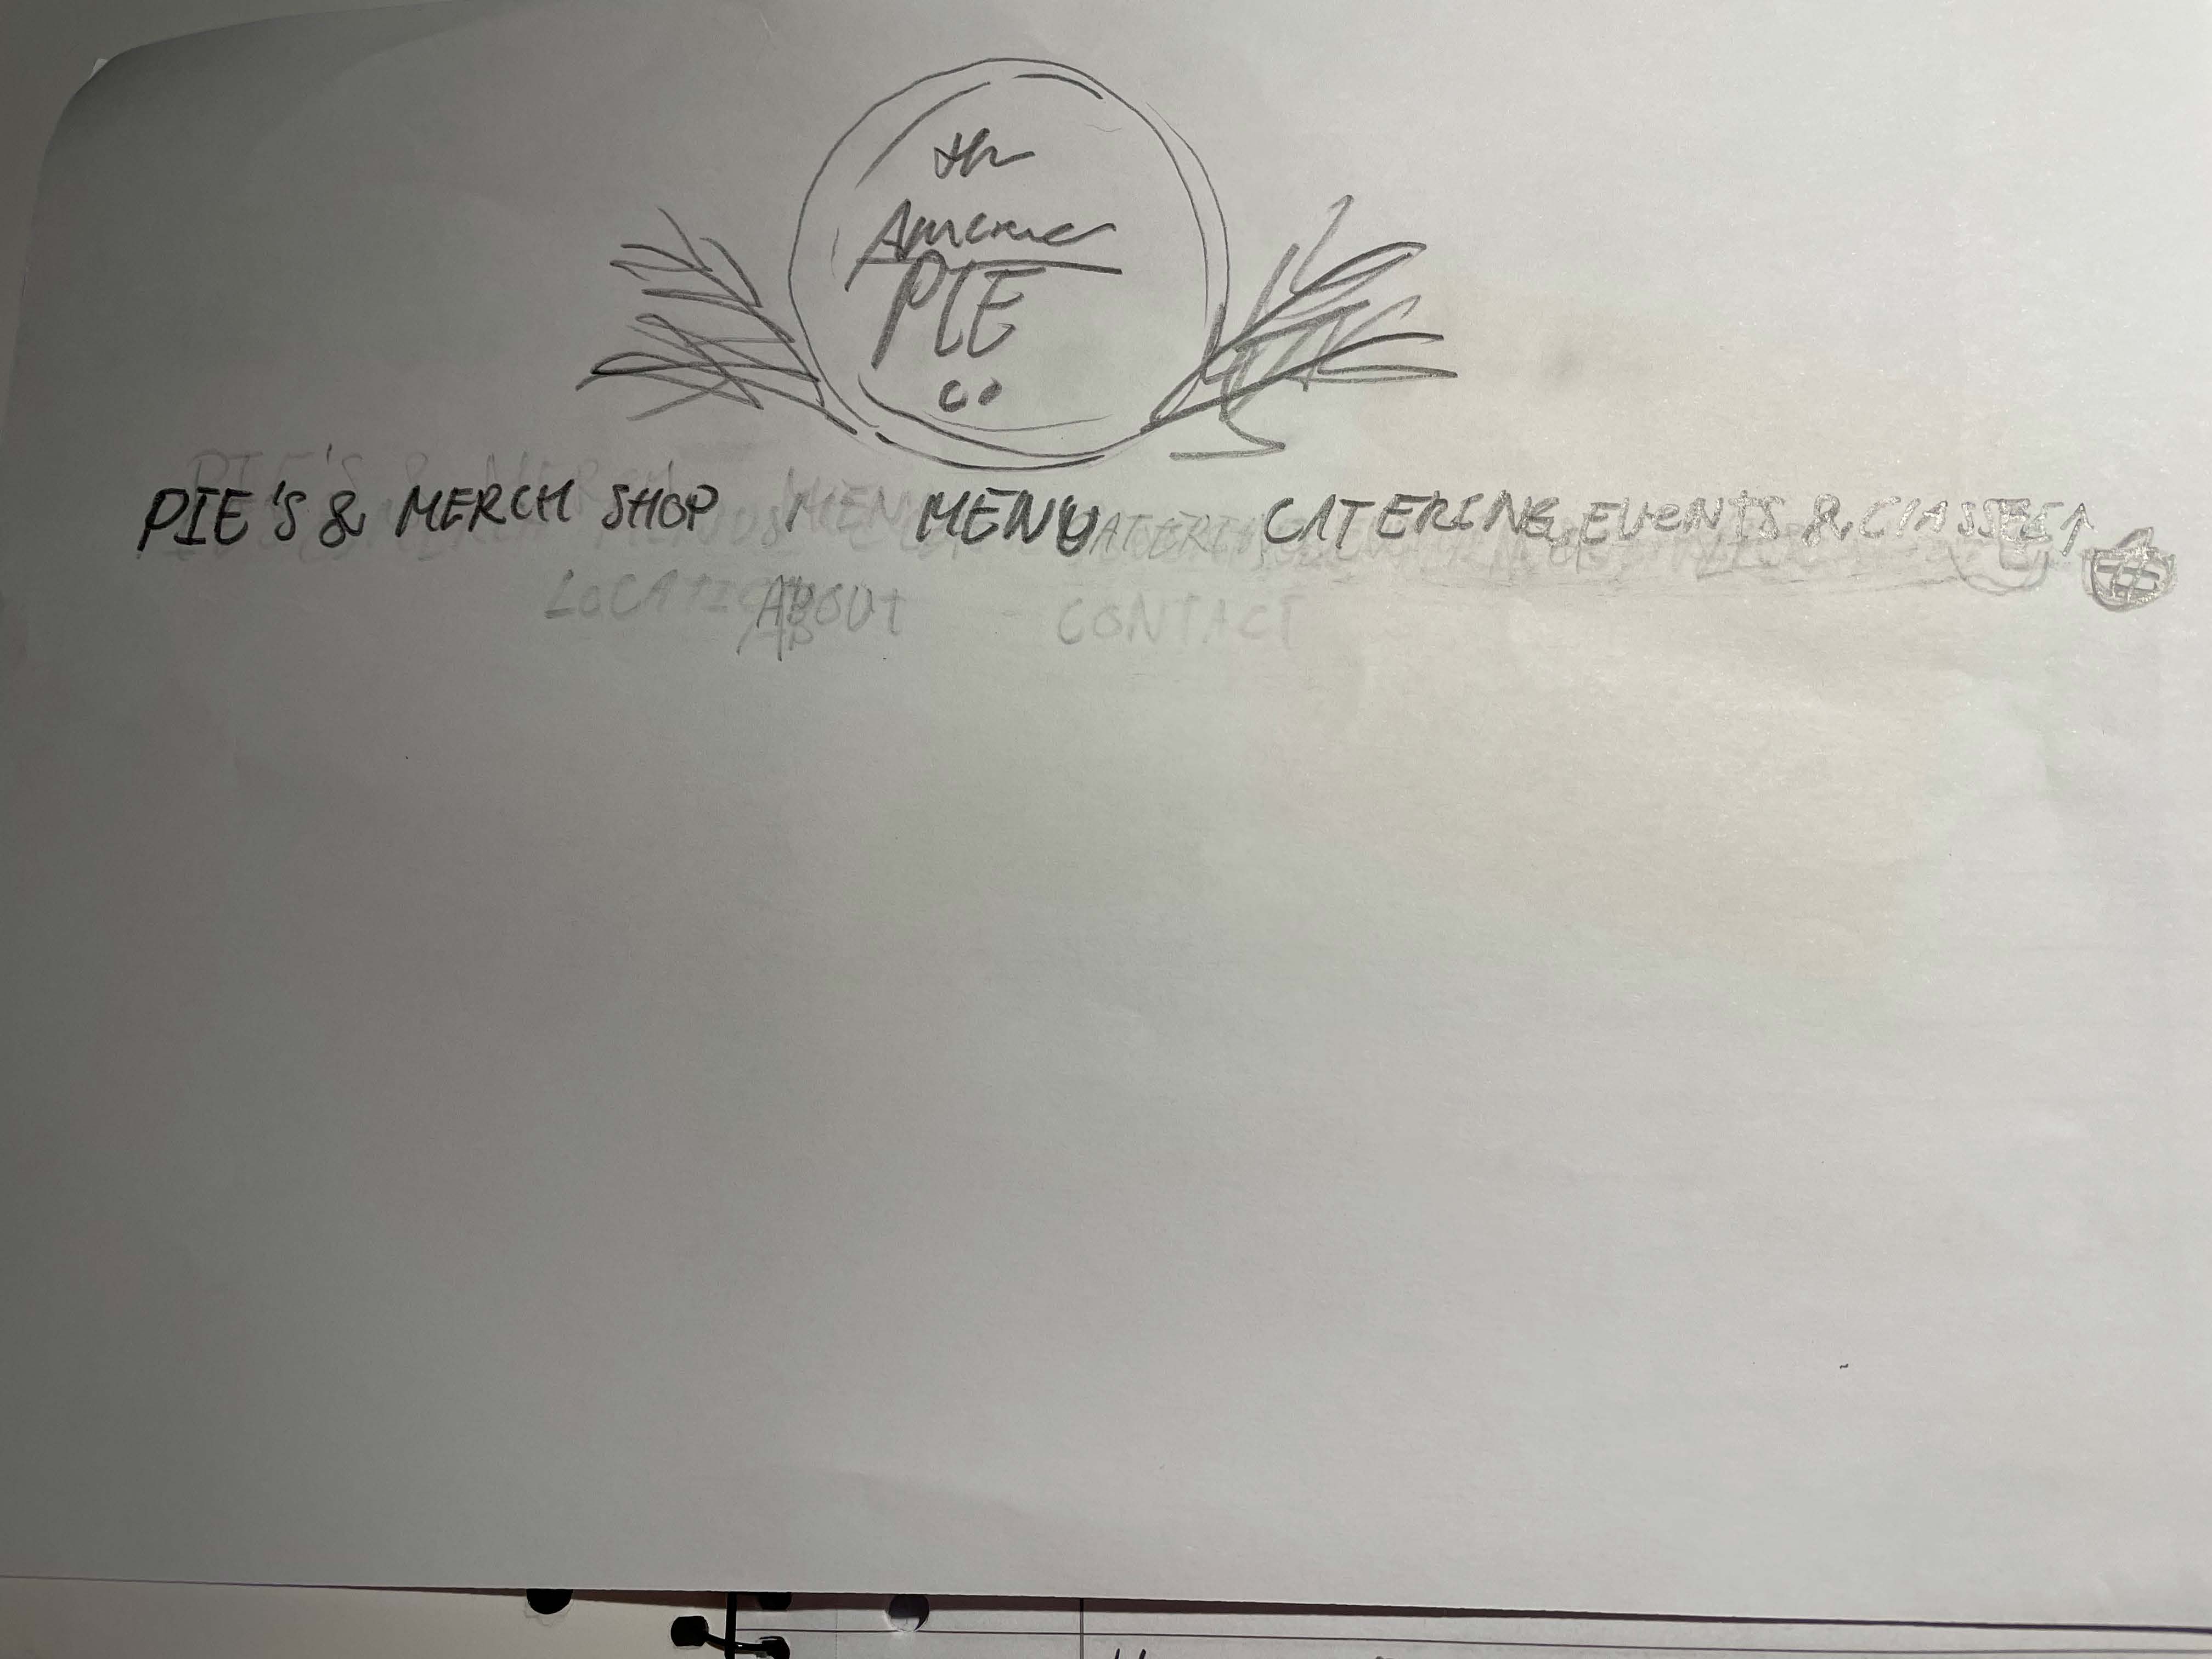 The
American
PIE
co
PIE'S & MERCH SHOP MENU CATERING, EVENTS & CLASSES
LOCATION ABOUT CONTACT